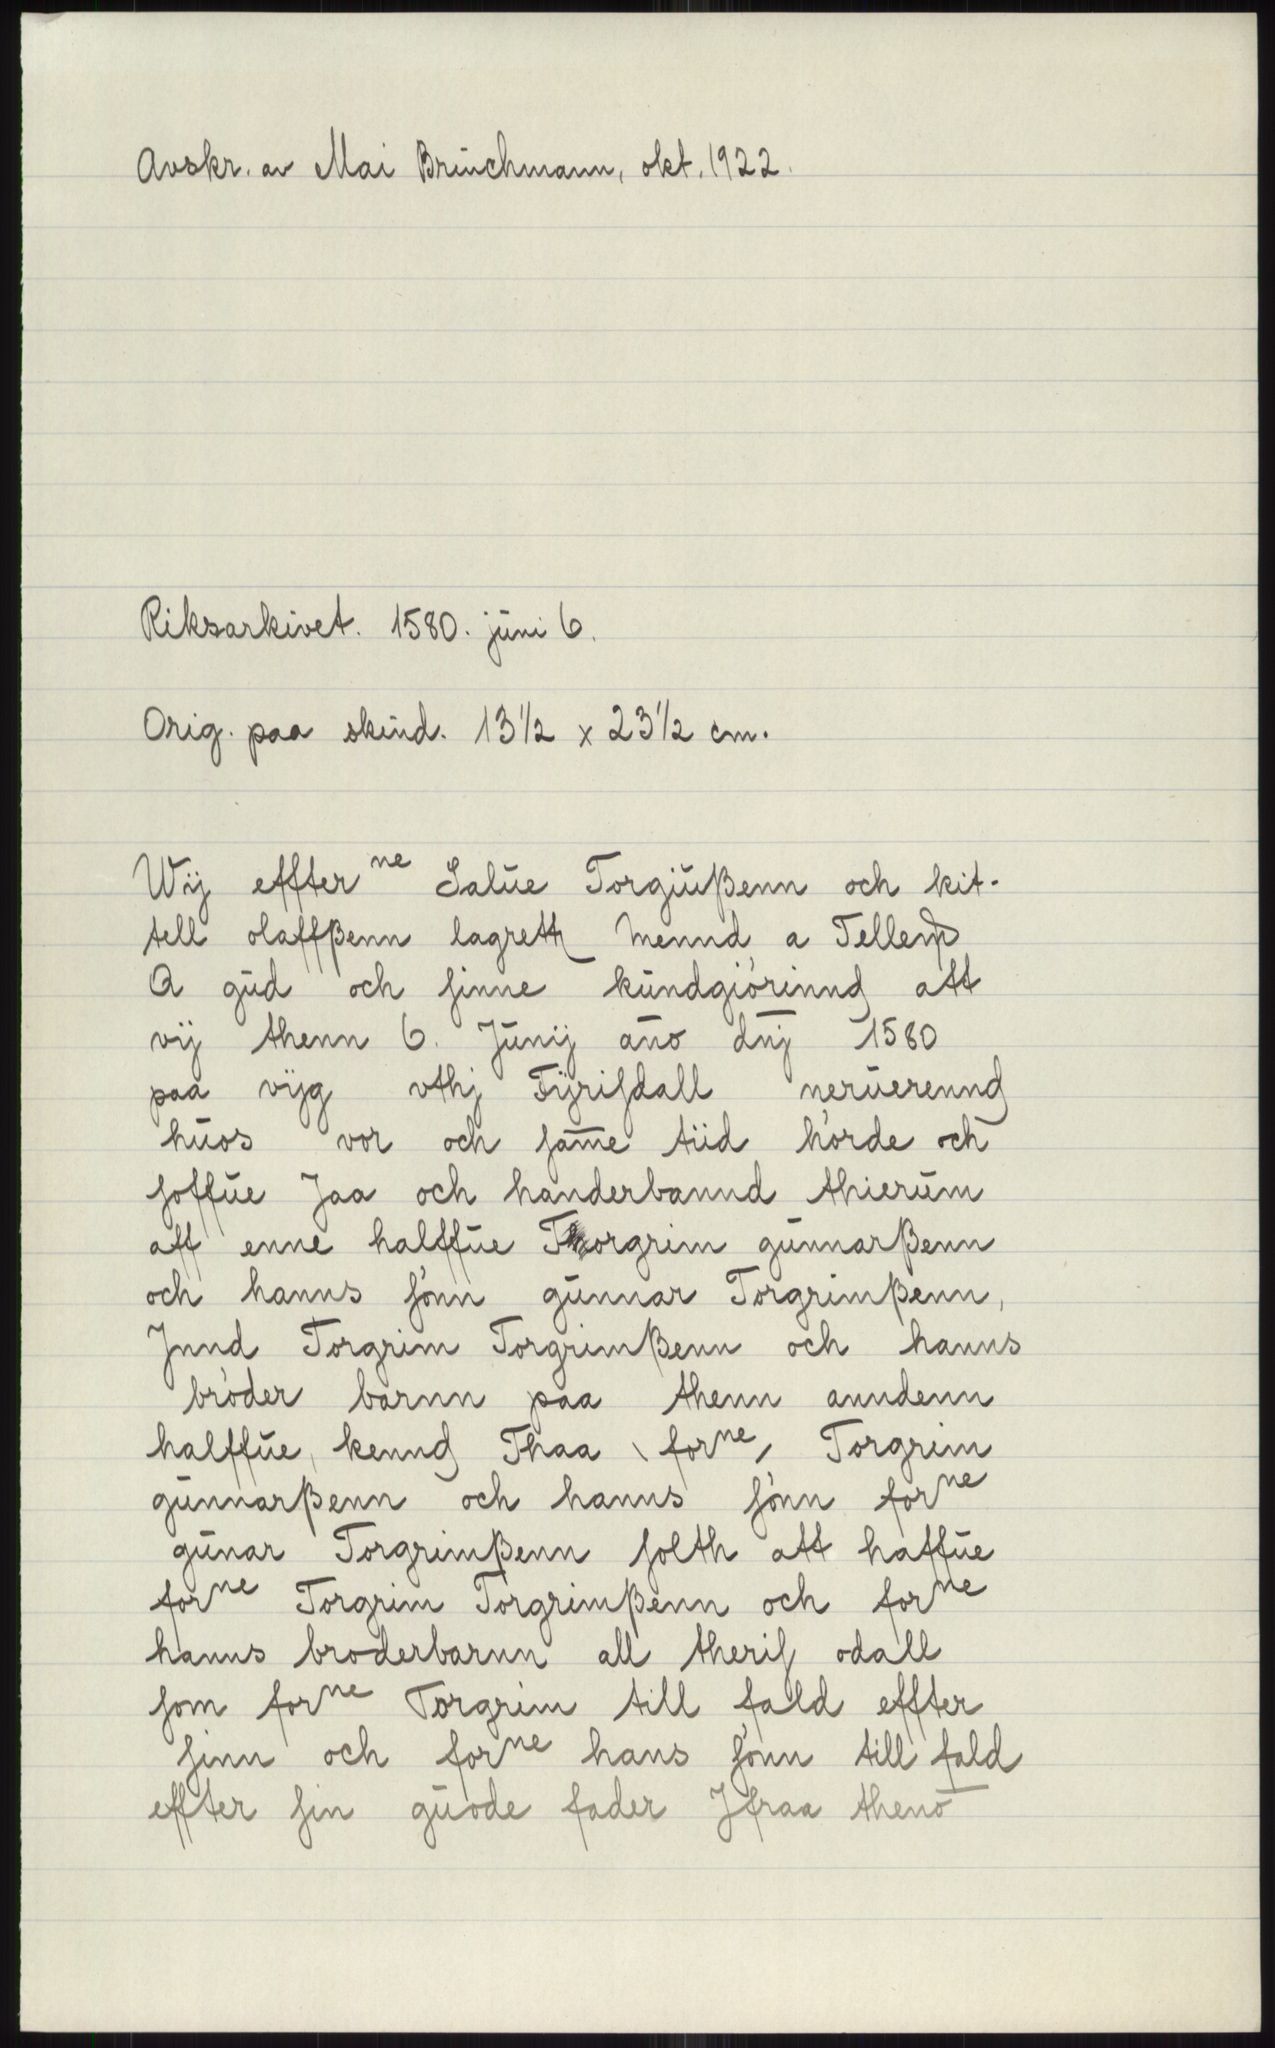 Avskr. av Mai Brüchmann, okt. 1922.
Riksarkivet. 1580. jŭni 6.
Orig. paa skind. 13½ x 23½ cm.
Wij effter ⁿᵉ Salŭe Torgiŭßenn och kit-
tell olaffßenn lagreth mennd a Tellem
A gŭd och sinne kŭndgiórinnd att
vij thenn 6. Jŭnij an̄o dn̄j 1580
paa vijg vthj Fijrisdall nerŭerennd
hŭos vor och sam̄e tiid hórde och
soffŭe Jaa och handerbannd thierŭm
aff enne halffŭe Torgrim gŭnnarßenn
och hanns sónn gŭnnar Torgrimßenn,
Jnnd Torgrim Torgrimßenn och hanns
bróder barnn paa thenn anndenn
halffŭe, kennd Thaa \ forⁿᵉ, Torgrim
gŭnnarßenn och hanns sónn forⁿᵉ
gŭnar Torgrimßenn solth att haffŭe
forⁿᵉ Torgrim Torgrimßenn och forⁿᵉ
hanns broderbarnn all theris odall
som forⁿᵉ Torgrim till fald effter
sinn och forⁿᵉ hans sónn till fald
effter sin gŭode fader Jfraa thenō